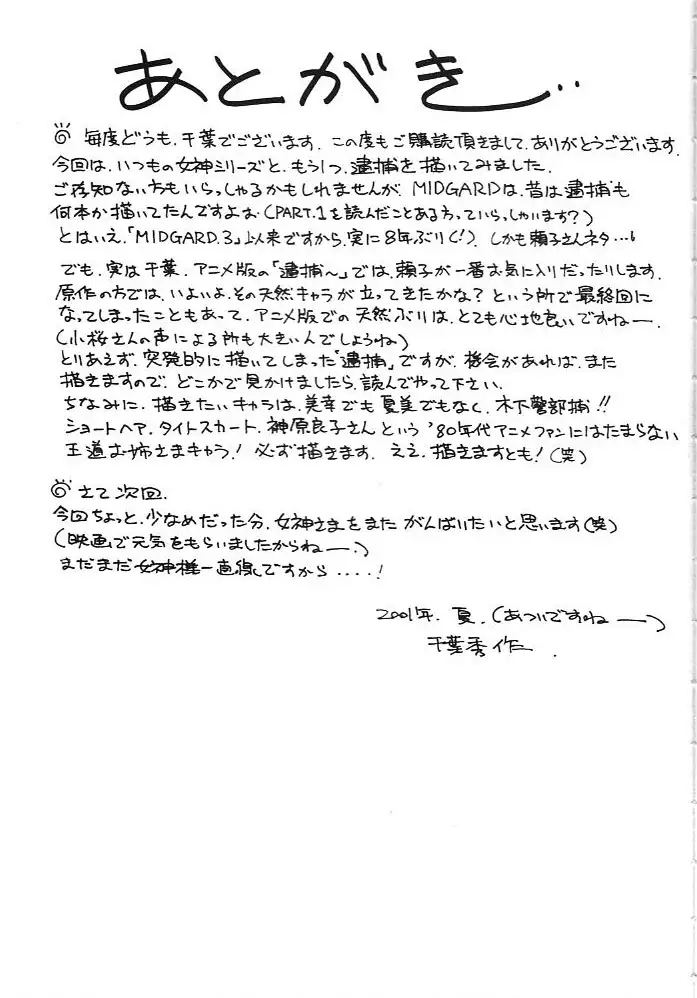 あとがき...
◎ 毎度どうも、千葉でございます。この度もご購読頂きまして、ありがとうございます。
今回は、いつもの女神シリーズと、もう1つ、逮捕を描いてみました。
ご存知ない方もいらっしゃるかもしれませんが、MIDGARDは、昔は逮捕も
何本か描いてたんですよな(PART.1を読んだことある方っていらっしゃいます?)
とはいえ、「MIDGARD.3」以来ですから、実に8年ぶり(!)しかも頼子さんネタ…。
でも、実は千葉、アニメ版の「逮捕〜」では、頼子が一番お気に入りだったりします。
原作の方では、いよいよ、その天然キャラが立ってきたかな?という所で最終回に
なってしまったこともあって、アニメ版での天然ぶりは、とても心地良いですねー。
(小桜さんの声による所も大きいんでしょうね)
とりあえず、突発的に描いてしまった「逮捕」ですが、機会があれば、また
描きますので、どこかで見かけましたら、読んでやって下さい。
ちなみに、描きたいキャラは、美幸でも夏美でもなく、木下警部補!!
ショートヘア、タイトスカート、神原良子さんという'80年代アニメファンにはたまらない
王道お姉さまキャラ!必ず描きます。ええ、描きますとも!(笑)
◎ さて次回。
今回ちょっと、少なめだった分、女神さまをまた がんばりたいと思います(笑)
(映画で元気をもらいましたからねー。)
まだまだ女神様一直線ですから....!
2001年.夏.(あついですねー)
千葉秀作.